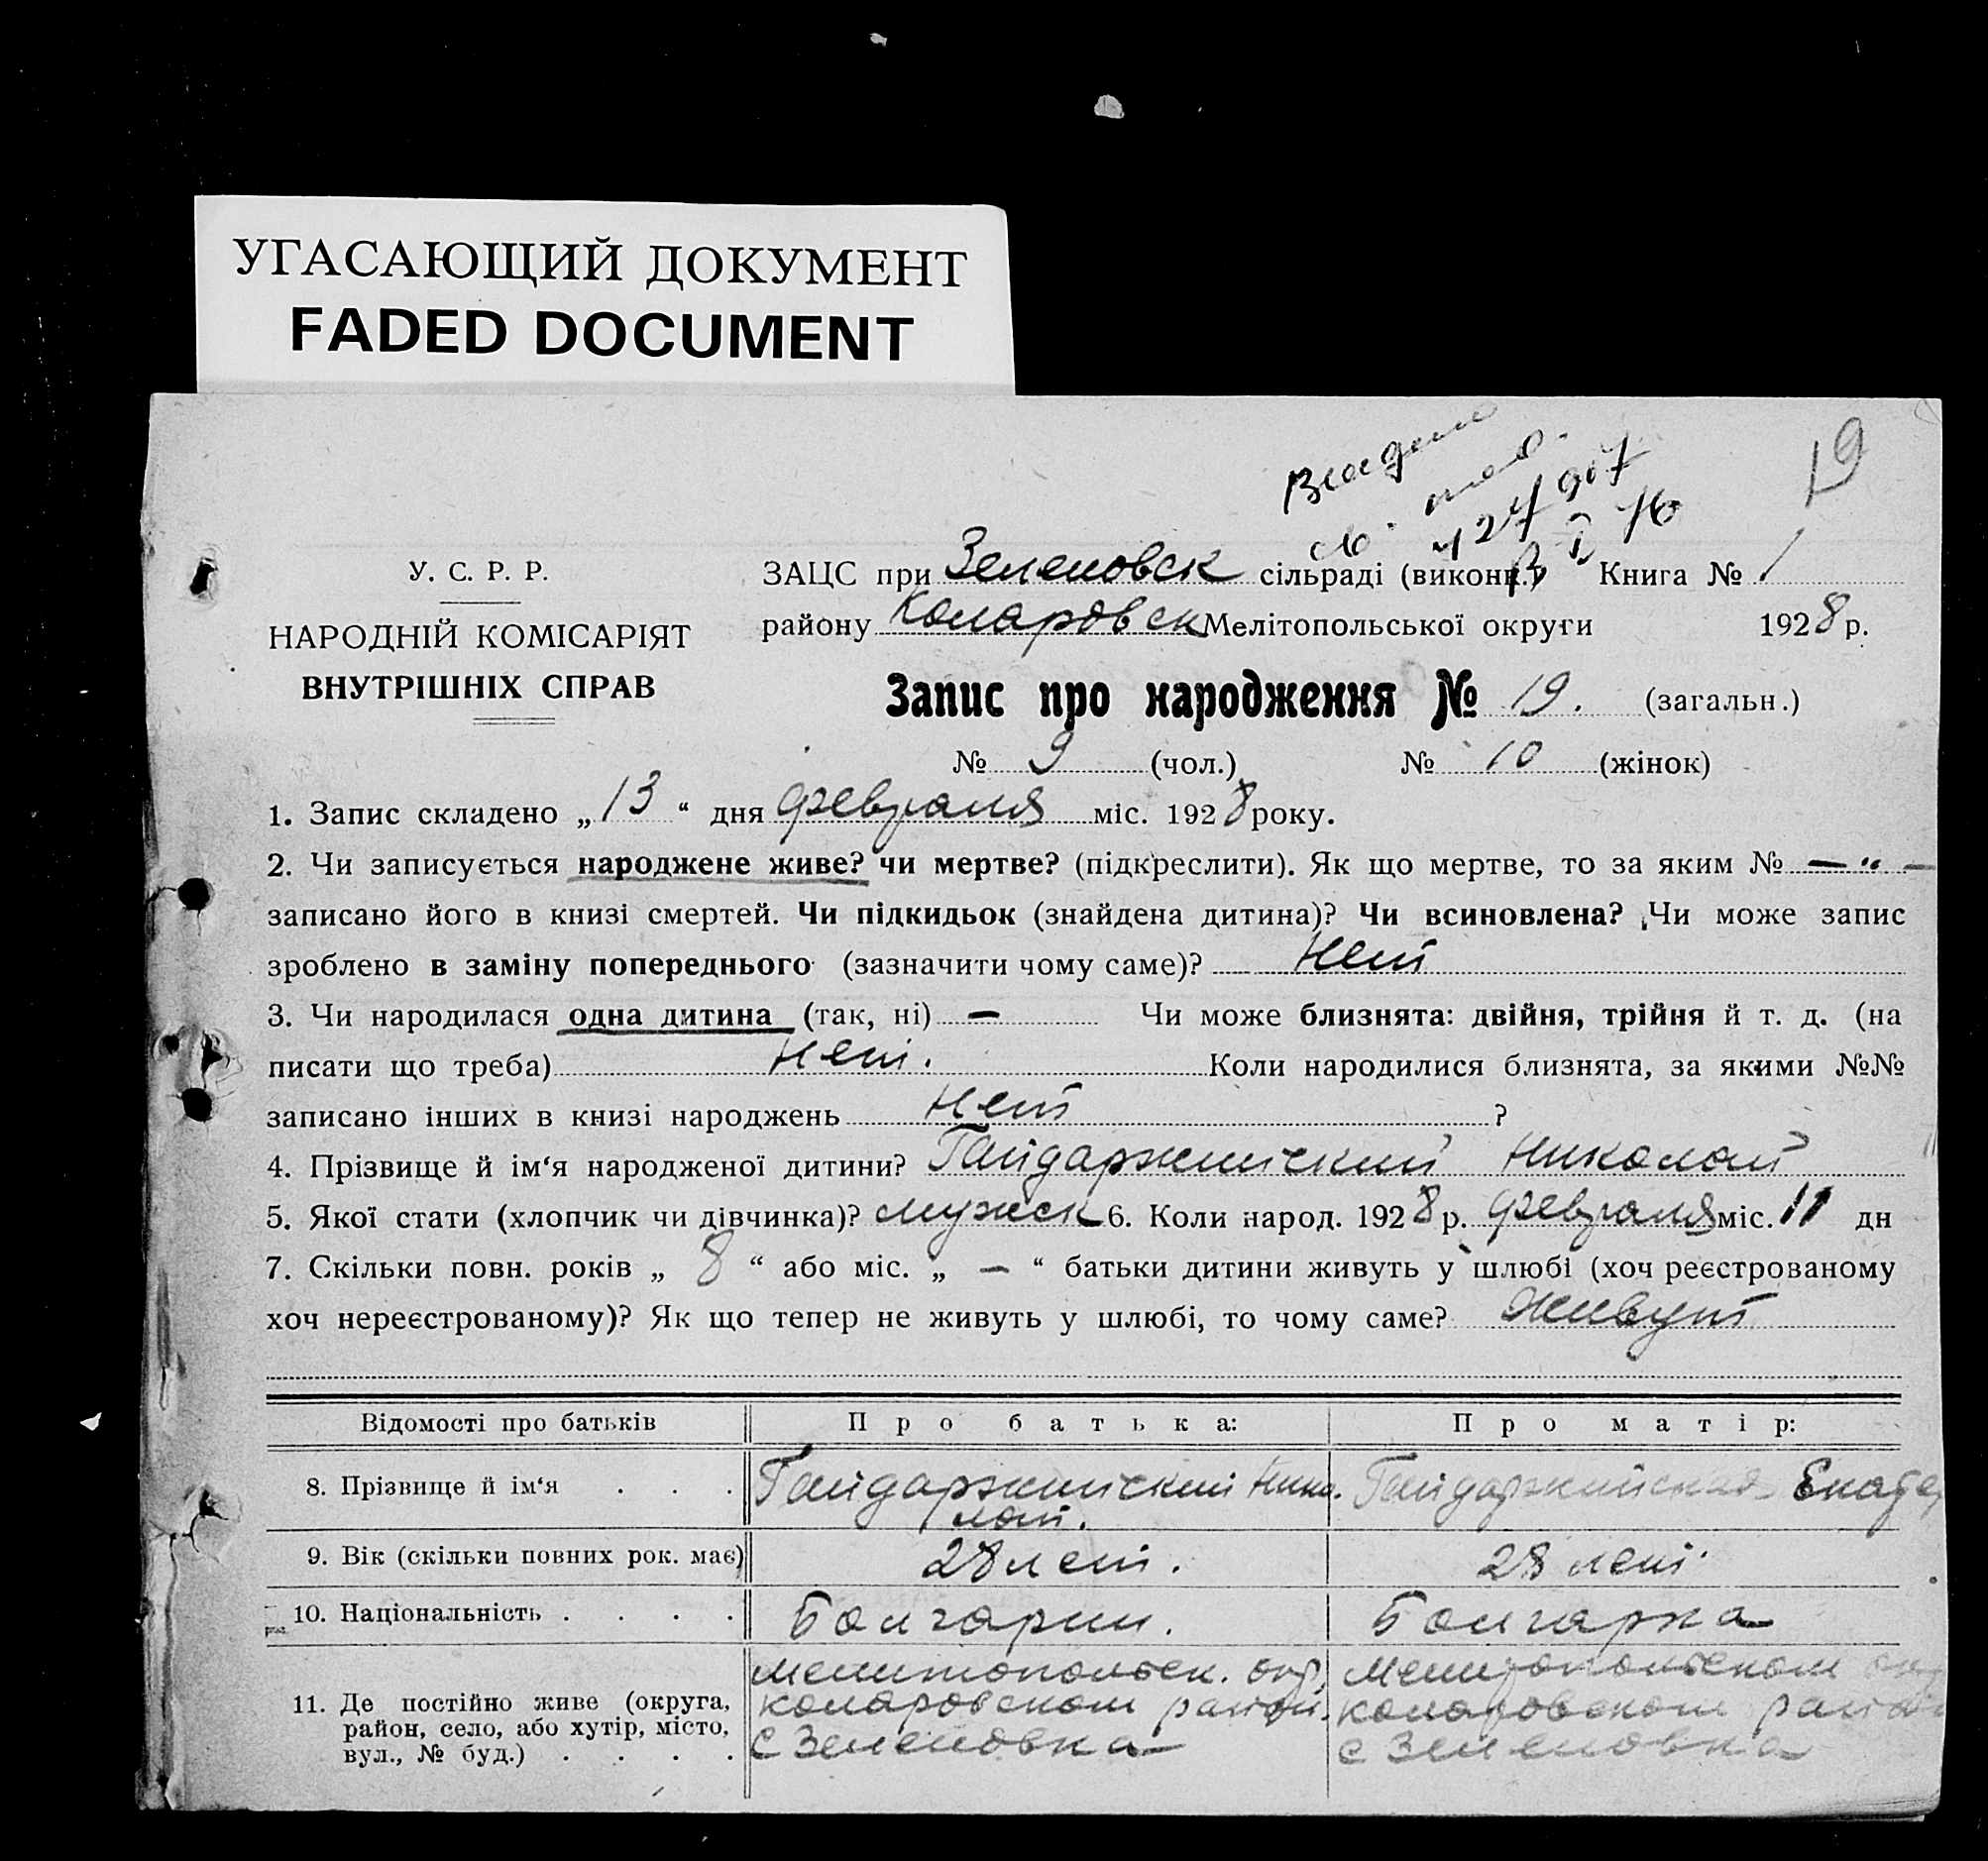 УГАСАЮЩИЙ ДОКУМЕНТ
FADED DOCUMENT
19
У. С. Р. Р.
НАРОДНІЙ КОМІСАРІЯТ
ВНУТРІШНІХ СПРАВ
ЗАЦС при Зеленовск сільраді (викон Книга № 1
району Коларовск Мелітопольської округи 1928 р.
Запис про народження № 19. (загальн.)
№ 9 (чол.) № 10 (жінок)
1. Запис складено „ 13 “ дня февраля міс. 1928 року.
2. Чи записується народжене живе? чи мертве? (підкреслити). Як що мертве, то за яким № — „ —
записано його в книзі смертей. Чи підкидьок (знайдена дитина)? Чи всиновлена? Чи може запис
зроблено в заміну попереднього (зазначити чому саме)? Нет
3. Чи народилася одна дитина (так, ні) — Чи може близнята: двійня, трійня й т. д. (на
писати що треба) Нет. Коли народилися близнята, за якими №№
записано інших в книзі народжень Нет ?
4. Прізвище й ім‘я народженої дитини? Гайдаржийский Николай
5. Якої стати (хлопчик чи дівчинка)? мужск 6. Коли народ. 1928 р. февраля міс. 11 дн
7. Скільки повн. років „ 8 “ або міс. „ — “ батьки дитини живуть у шлюбі (хоч реєстрованому
хоч нереєстрованому)? Як що тепер не живуть у шлюбі, то чому саме? Живут
Відомості про батьків Про батька: Про матір:
8. Прізвище й ім‘я . . . Гайдаржийский Нико- Гайдаржийская Екатер
лай.
9. Вік (скільки повних рок. має) 28 лет. 28 лет.
10. Національність . . . . Болгарин. Болгарка
Мелитопольск. окр, Мелитопольском окр
11. Де постійно живе (округа, Коларовском район. Коларовском район
район, село, або хутір, місто,
вул., № буд.) . . . . с Зеленовка с Зеленовка